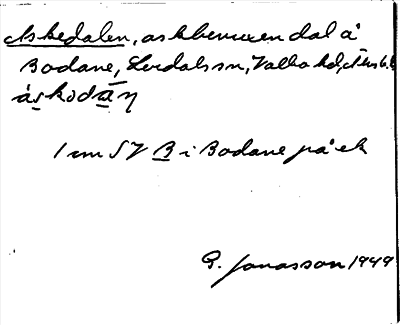 Askedalen, askbevuxen dal å
Bodane, Lerdals sn, Valbo hd, Älvsb. l.
åskodäŋ
1 cm SV B i Bodane på ek
G. Jonasson 1949